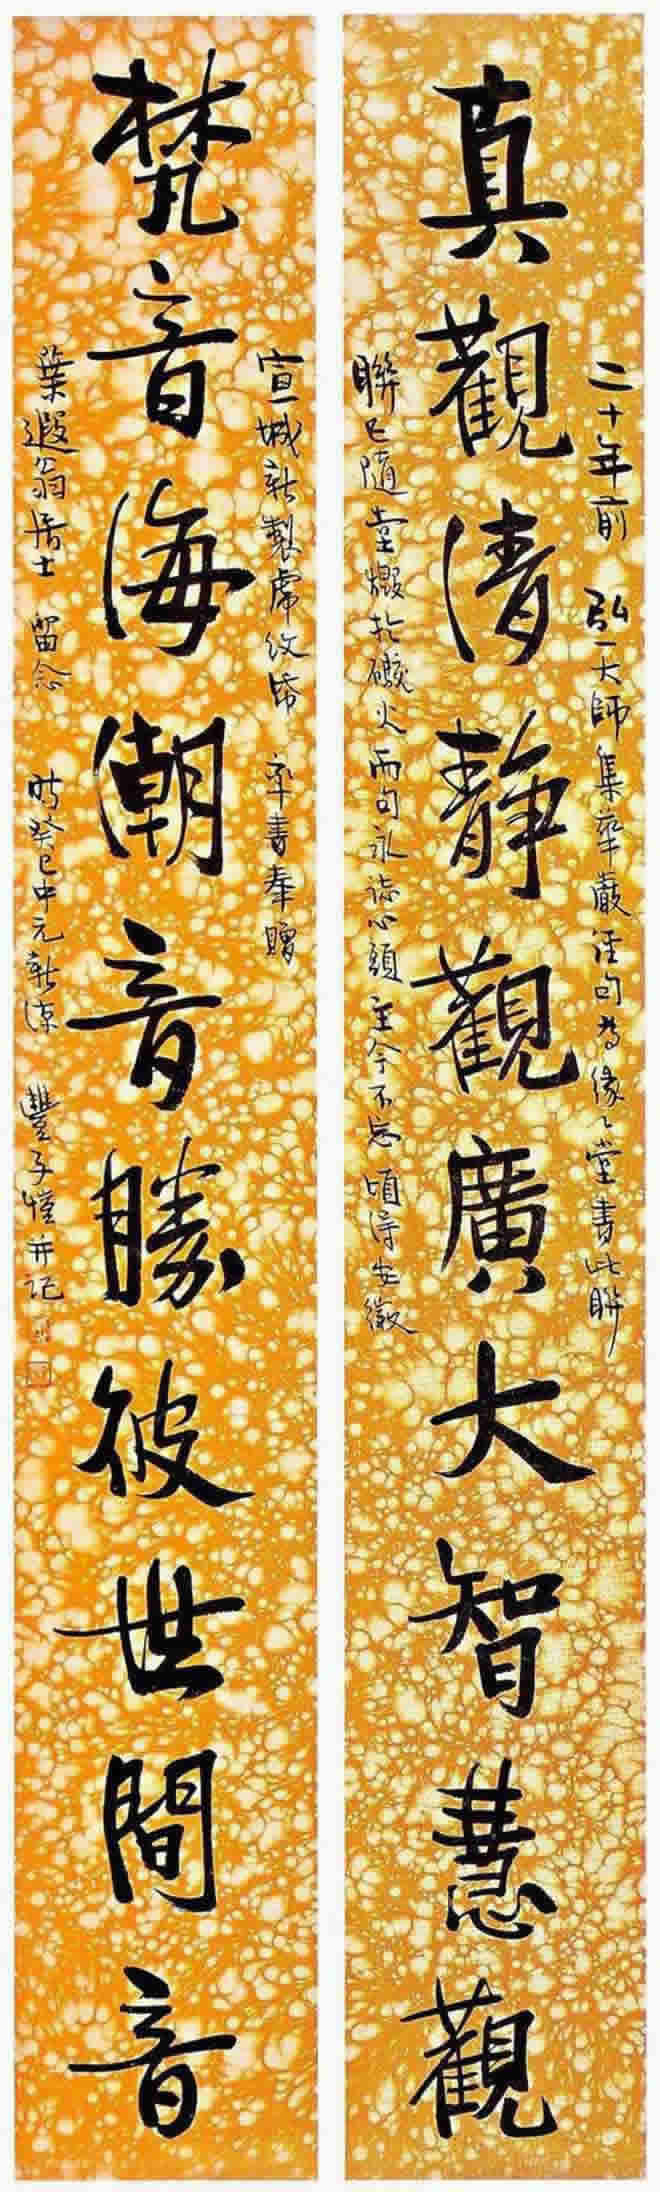 真觀清静觀廣大智慧觀
二十年前 弘一大師集華嚴經句為緣々堂書此聯
聯已隨堂燬於礮火而句永誌心頭至今不忘頃得安徽
梵音海潮音勝彼世間音
宣城新製虎紋牋 率書奉贈
葉遐翁居士 留念 時癸巳中元新涼 豐子愷并記